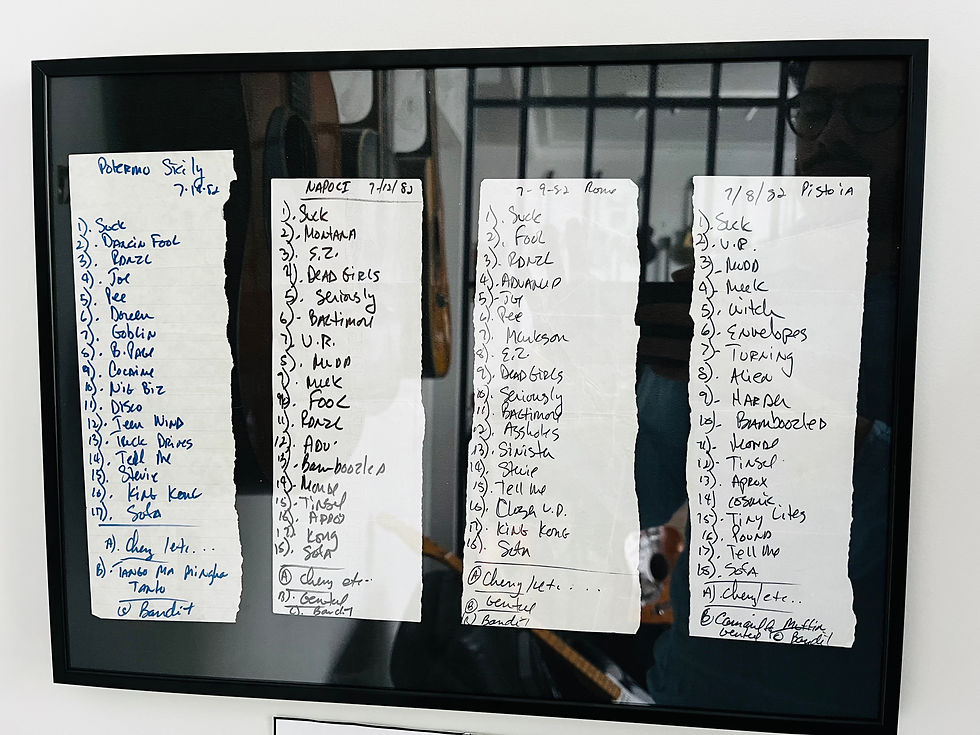 Palermo Sicily
7.14.82
1). Suck
2). Dancin Fool
3). RDNZL
4). Joe
5). Pee
6). Doreen
7). Goblin
8). B. Page
9). Cocaine
10). Nig Biz
11). Disco
12). Teen Wind
13). Truck Drives
14). Tell Me
15). Stevie
16). King Kong
17). Sofa
A). Cherry/etc...
B). Tango Ma Minghe
Tanto
C) Bandit
NAPOLI 7/12/82
1). Suck
2). MONTANA
3). E.Z.
4). DEAD GIRLS
5). Seriously
6). BALTIMORE
7). U.R.
8). MUDD
9). Meek
10). FOOL
11). RDNZL
12). ADV.
13). BamboozleD
14). Monde
15). Tinsel
16). APPROX
17). Kong
18). SofA
A) Cherry etc...
B). Genteel
C). Bandit
7-9-82 Rome
1). Suck
2). Fool
3). RDNZL
4). ADVANCED
5)- Joe
6). Pee
7). Markeson
8). E.Z.
9). DEAD GIRLS
10). Seriously
11). BALTIMORE
12). Assholes
13). Sinista
14). Stevie
15). Tell me
16). Clogs U.D.
17). KING KONG
18). Sofa
A) Cherry/etc....
B) Genteel
C) Bandit
7/8/82 PistoiA
1). Suck
2). U.R.
3). MUDD
4). Meek
5). Witch
6). Envelopes
7)- TURNING
8). Alien
9)- HARDER
10)- Bamboozled
11). Monde
12)- Tinsel
13). Aprox
14) cosmic
15)- Tiny Lites
16). POUND
17). Tell Me
18). SofA
A) Cherry/etc..
B) Camarillo Muffin
Genteel C) Bandit